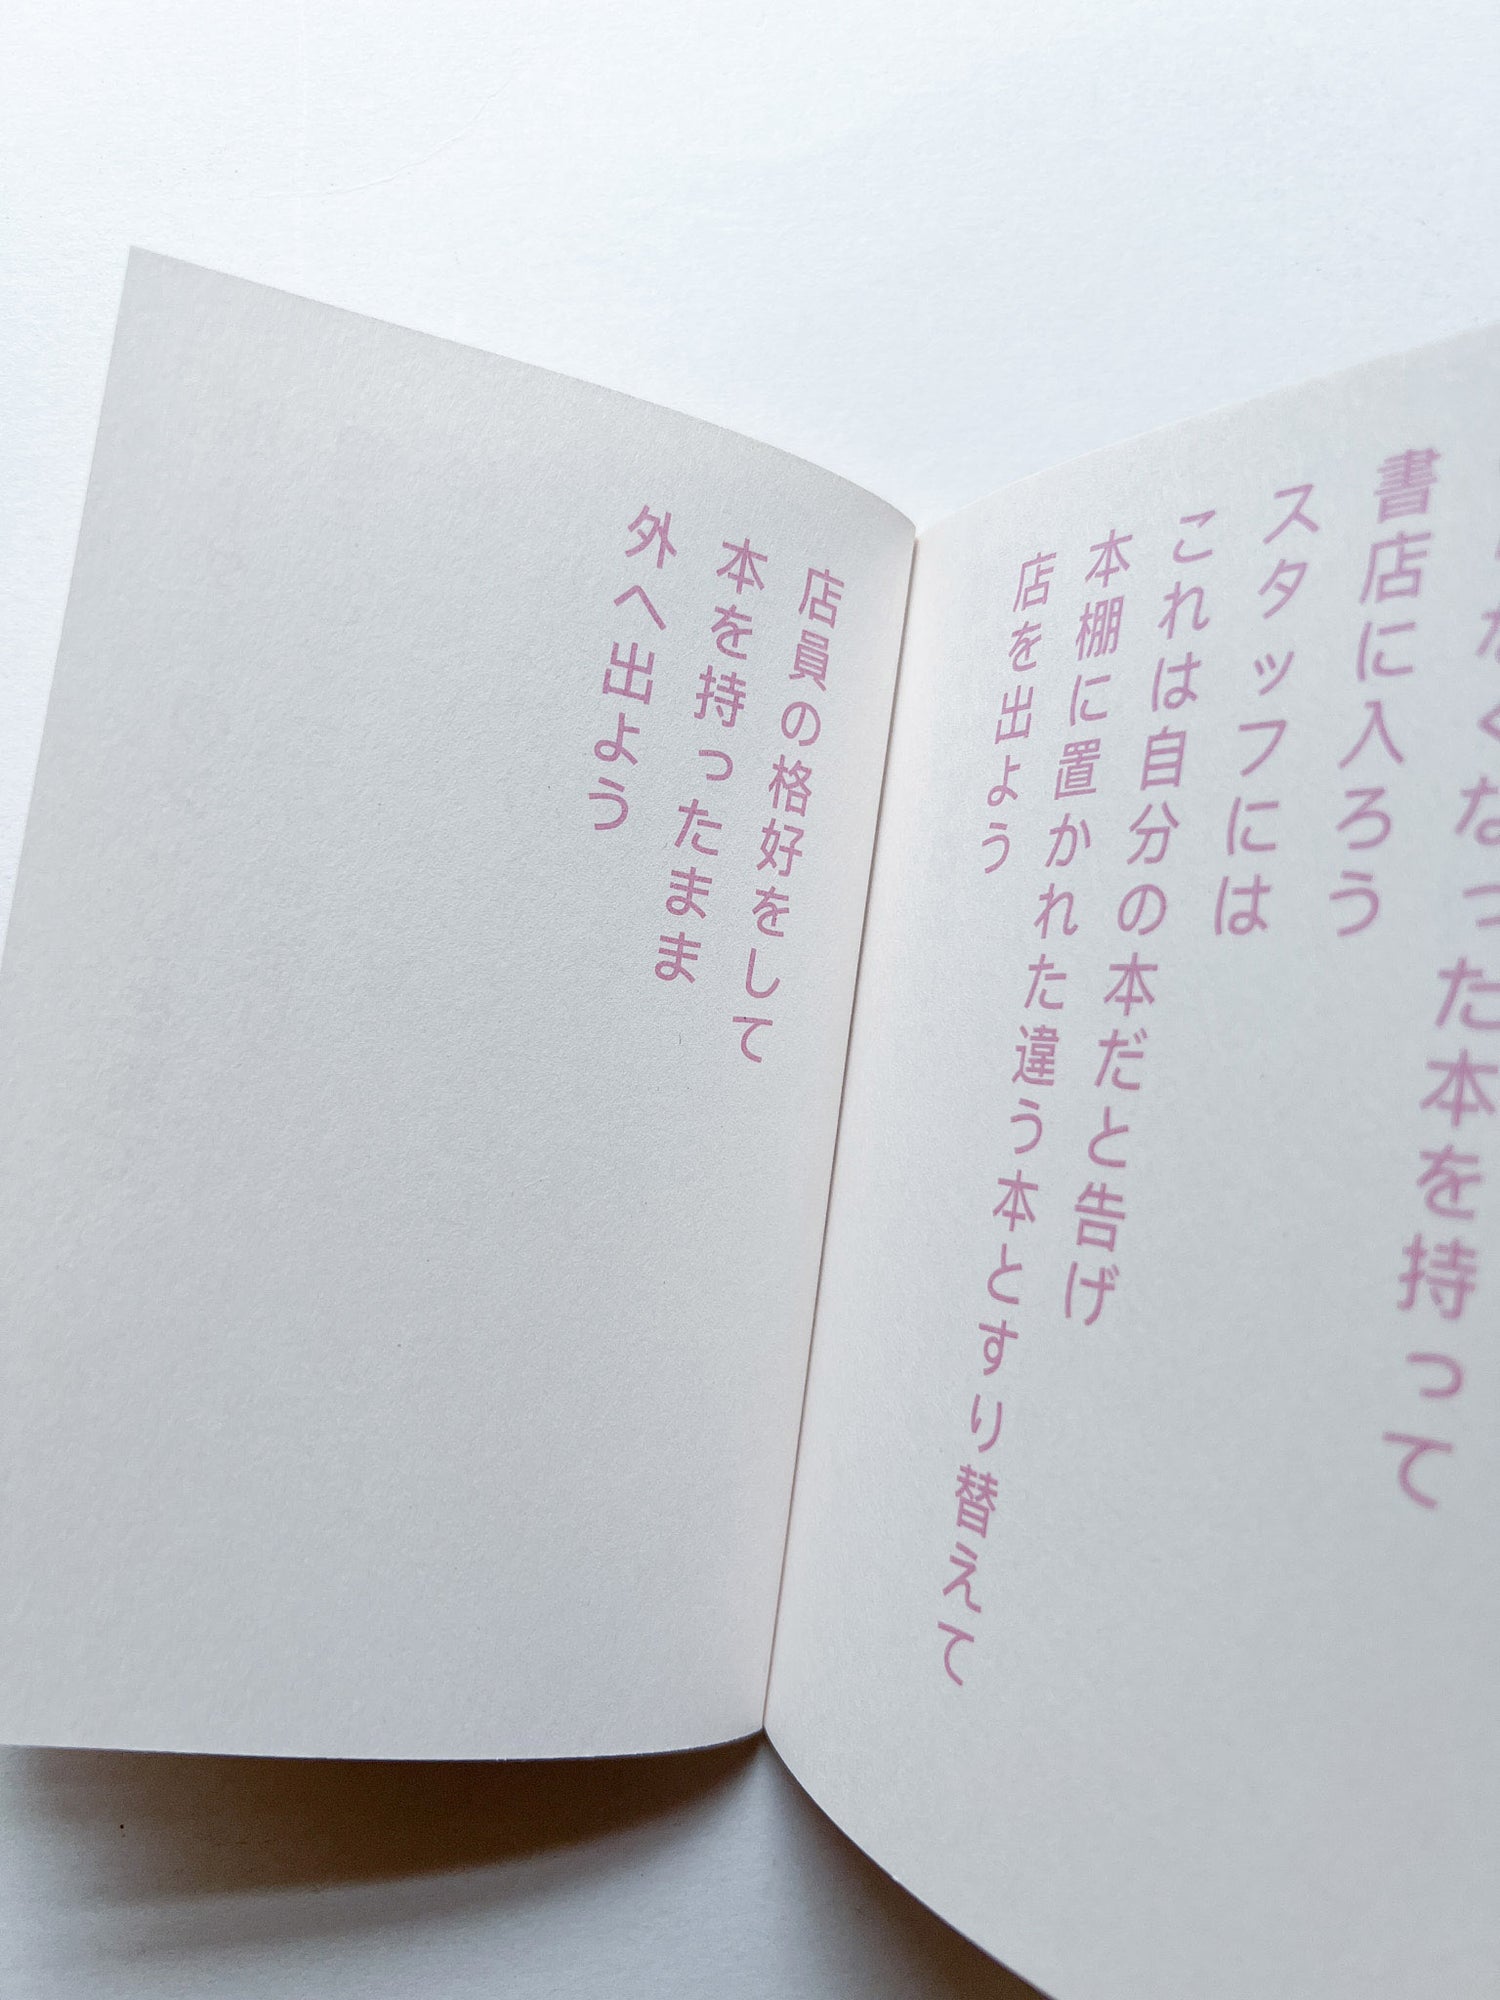 なくなった本を持って
書店に入ろう
スタッフには
これは自分の本だと告げ
本棚に置かれた違う本とすり替えて
店を出よう
店員の格好をして
本を持ったまま
外へ出よう